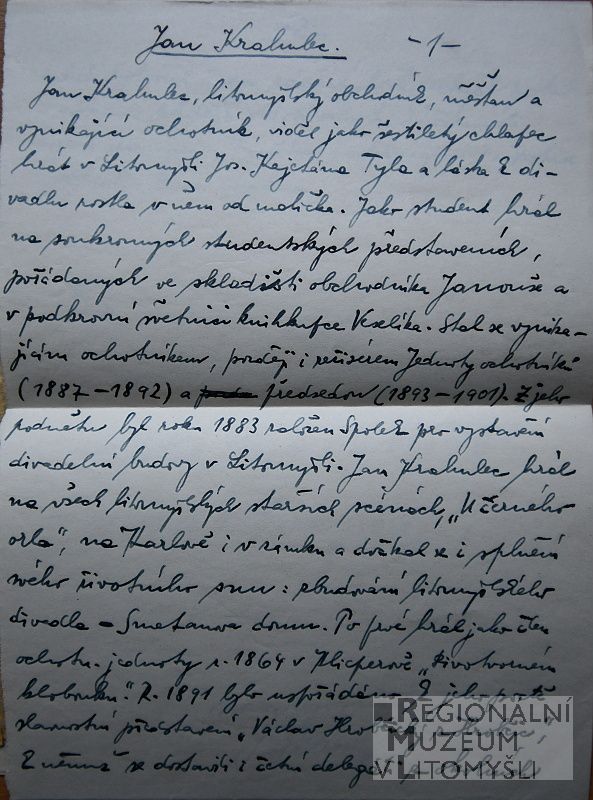 Jan Krahulec. -1-
Jan Krahulec, litomyšlský obchodník, měšťan a
vynikající ochotník, viděl jako šestiletý chlapec
hrát v Litomyšli Jos. Kajetána Tyla a láska k di-
vadlu rostla v něm od malička. Jako student hrál
na soukromých studentských představeních,
pořádaných ve skladišti obchodníka Janouše a
v podkrovní světnici knihkupce Veselíka. Stal se vynika-
jícím ochotníkem, později i režisérem Jednoty ochotníků
(1887-1892) a předsedou (1893-1901). Z jeho
podnětu byl roku 1883 založen Spolek pro vystavění
divadelní budovy v Litomyšli. Jan Krahulec hrál
na všech litomyšlských starších scénách, "U černého
orla", na Karlově i v zámku a dočkal se i splnění
svého životního snu: zbudování litomyšlského
divadla - Smetanova domu. Po prvé hrál jako člen
ochotn. jednoty r. 1864 v Klicperově "Divotvorném
klobouku". R. 1891 bylo uspořádáno k jeho poctě
slavnostní představení "Václav
k němuž se dostavili i četní
REGIONÁLNÍ
MUZEUM
V LITOMYŠLI